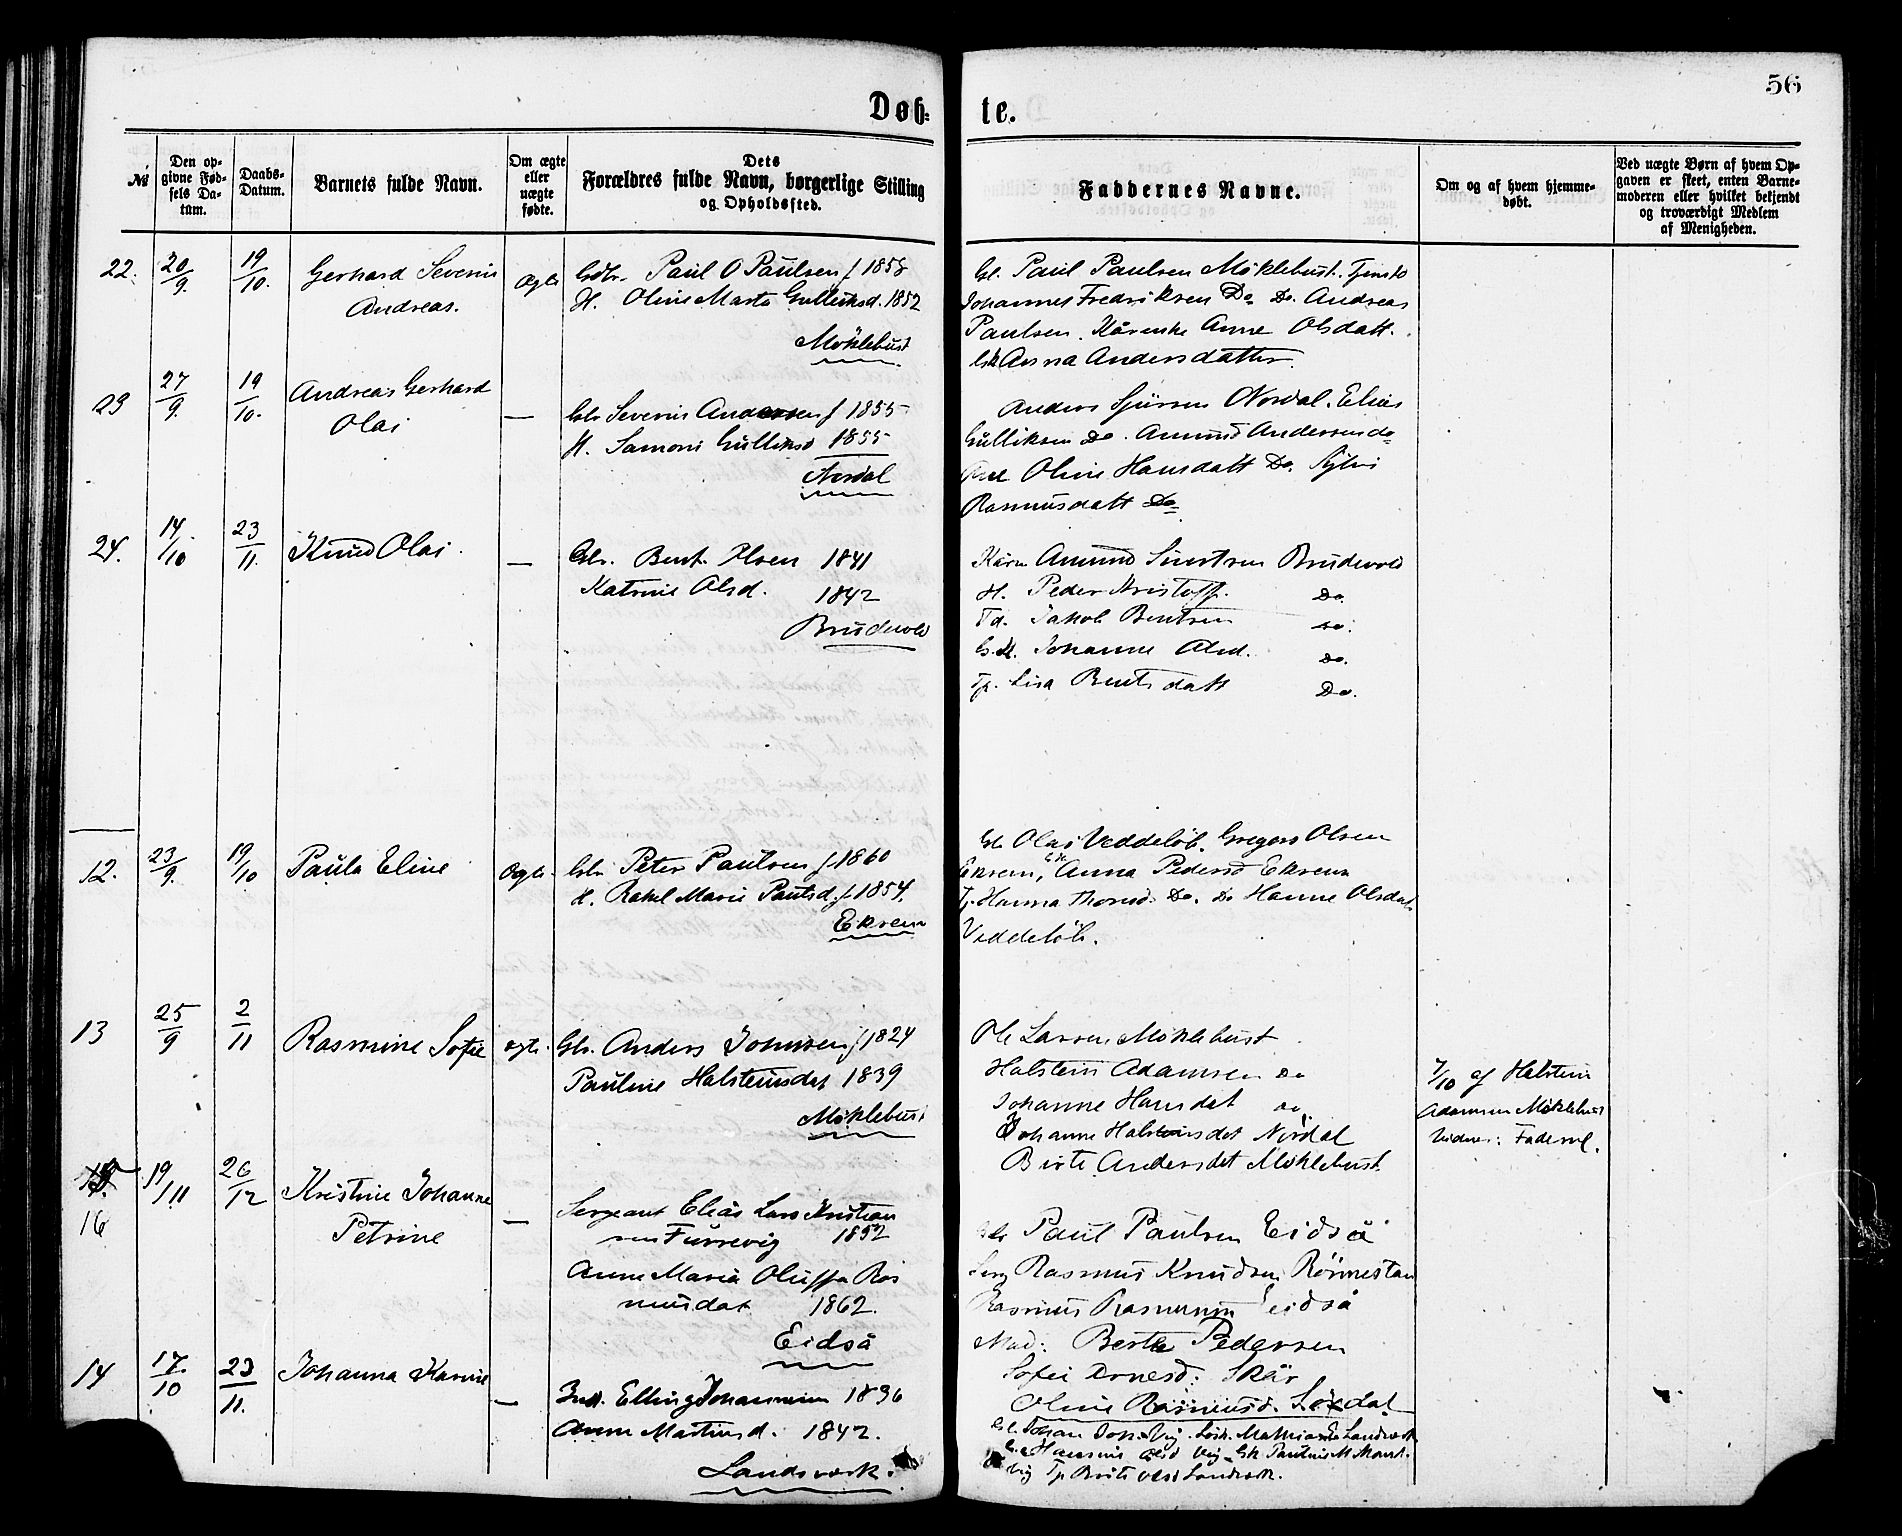 56
Døb-
te.
№
Den op-
givne Fød-
sels Da-
tum.
Daabs-
Datum.
Barnets fulde Navn.
Om ægte
eller
uægte
fødte.
Dets
Forældres fulde Navn, borgerlige Stilling
og Opholdssted.
Faddernes Navne.
Om og af hvem hjemme-
døbt.
Ved uægte Børn af hvem Op-
gaven er skeet, enten Barne-
moderen eller hvilket bekjendt
og troværdigt Medlem
af Menigheden.
22. 20/9. 19/10. Gerhard Severin
Andreas.
Paul O Paulsen f 1858
H. Oline Marta Gulliksd. 1852
Møklebust
Paul Paulsen Møklebust.
Johannes Fredriksen Do Do. Andreas
Paulsen. Anne Olsdatt.
Anna Andersdatter.
23 27/9. 19/10. Andreas Gerhard
Olai
—
Severin Andersen f 1855
H. Gulliksd 1855
Nordal
Anders Nordal. Elias
Gulliksen Do. Amund Andersen do
Oline Hansdatt Do.
Rasmusdatt Do
24. 14/10 23/11. Knud Olai
—
Gbr. Bent Olsen 1841
Katrine Olsd. 1842
Brudevold
Amund Sivertsen Brudevold
H. Peder Kristoff. Do.
Jakob Bentsen do.
Johanne Olsd. Do.
Lisa Bentsdatt Do.
12. 23/9. 19/10 Paula Eline
Peter Paulsen f. 1860
H. Rakel Marie Paulsd. f. 1854.
Ekrem
Olai Veddeløb. Gregers Olsen
Ekrem, Anna Pedersd Ekrem
Hanna Thorsd. Do. Do Hanne Olsdat
Veddeløb.
13 25/9 2/11 Rasmine Sofie
Gbr. Anders Johnsen f 1824
Pauline Halsteinsdat 1839
Møklebust
Ole Larsen Møklebust
Halstein Adamsen Do
Johanne Hansdat do.
Johanne Halsteinsdat Nordal
Berte Andersdet Møklebust
7/10 af Halstein
Adamsen Møklebust
Vidner: Faderne.
16
19/11 26/12 Kristine Johanne
Petrine
—
Sergeant Elias Lars Kristian
sen Furrevig 1852
Anne Maria Oluffa Ras
musdat 1862.
Eidså
Paul Paulsen Eidså
Rasmus Knudsen Rönnestad
Rasmus Rasmussen Eidså
Mad: Berte Pedersen
Sofie Skår
Oline Rasmusd.
14 17/10 23/11. Johanna Karine
—
Elling Johannesen 1836
Anne Martinsd. 1842.
Landsverk.